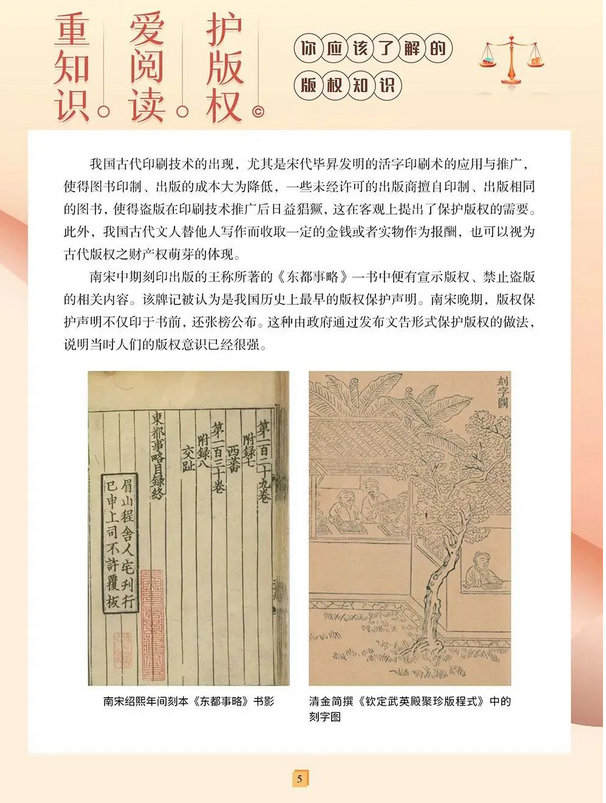 重知识
爱阅读
护版权
©
你应该了解的
版权知识
我国古代印刷技术的出现，尤其是宋代毕昇发明的活字印刷术的应用与推广，
使得图书印制、出版的成本大为降低，一些未经许可的出版商擅自印制、出版相同
的图书，使得盗版在印刷技术推广后日益猖獗，这在客观上提出了保护版权的需要。
此外，我国古代文人替他人写作而收取一定的金钱或者实物作为报酬，也可以视为
古代版权之财产权萌芽的体现。
南宋中期刻印出版的王称所著的《东都事略》一书中便有宣示版权、禁止盗版
的相关内容。该牌记被认为是我国历史上最早的版权保护声明。南宋晚期，版权保
护声明不仅印于书前，还张榜公布。这种由政府通过发布文告形式保护版权的做法，
说明当时人们的版权意识已经很强。
第一百二十九卷
附録七
西蕃
第一百三十卷
附録八
交趾
東都事略目録終
眉山程舍人宅刊行
已申上司不許覆板
刻字圖
南宋绍熙年间刻本《东都事略》书影
清金简撰《钦定武英殿聚珍版程式》中的
刻字图
5